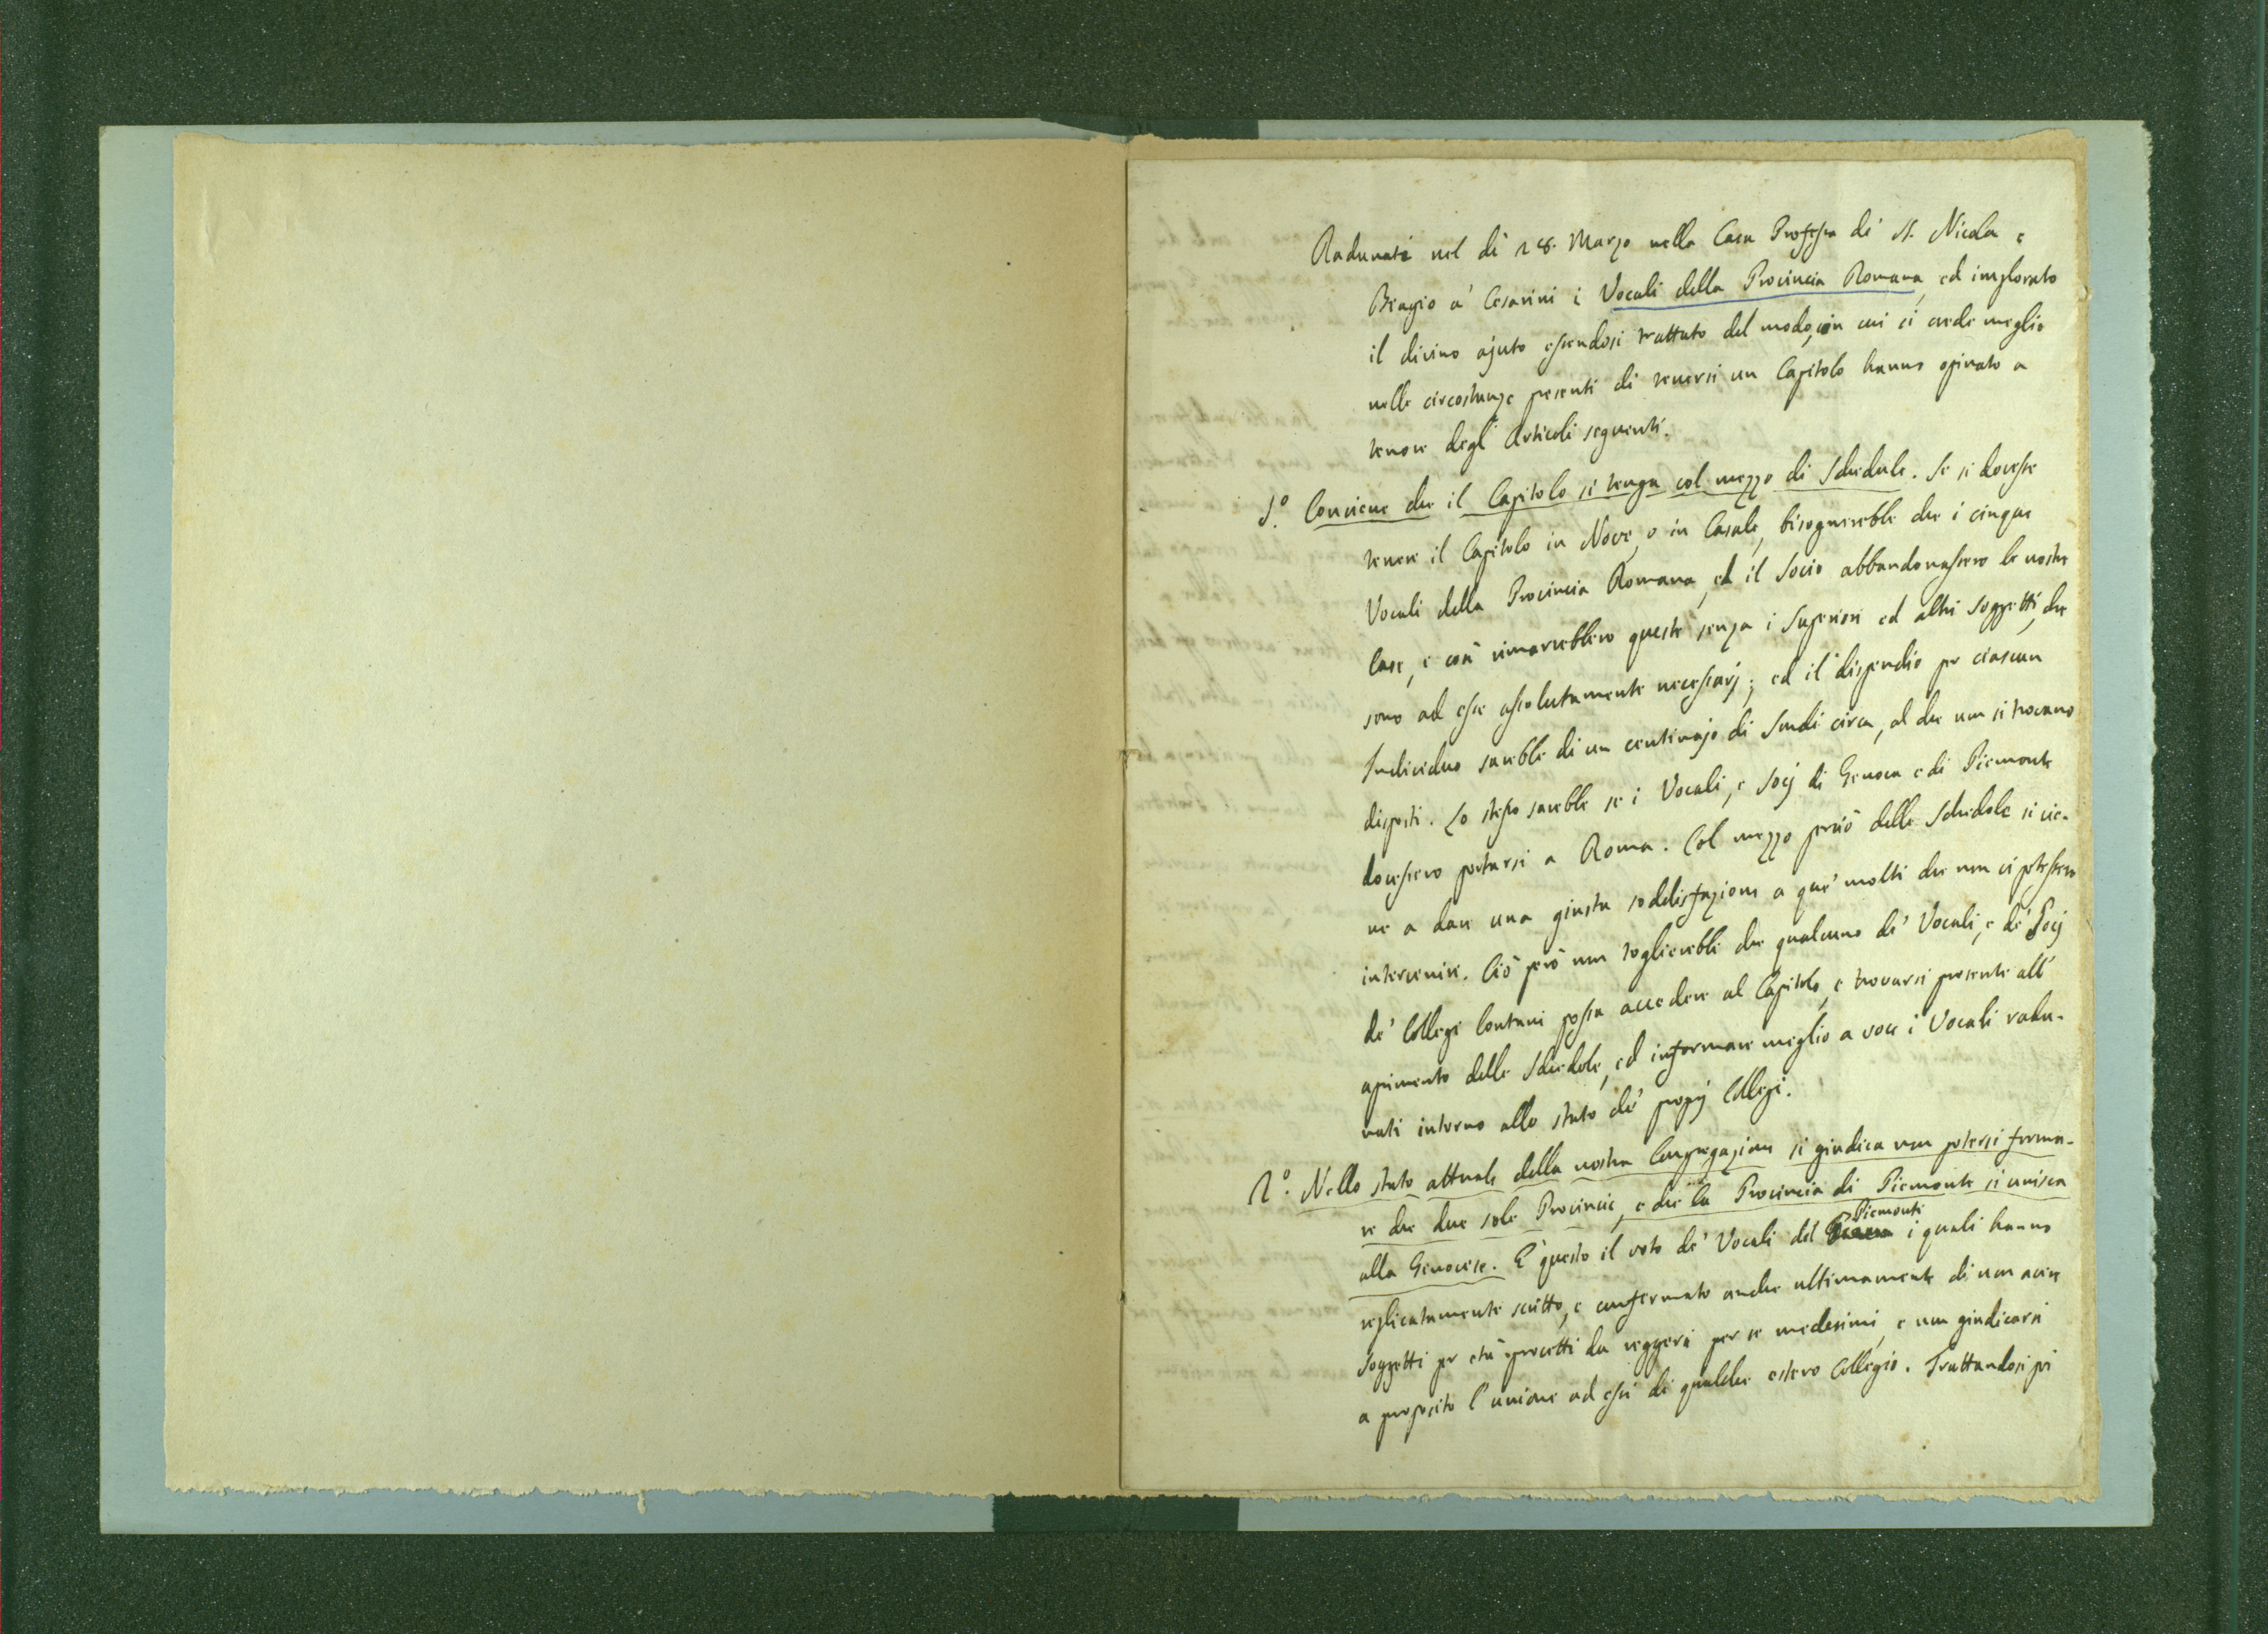 Radunati nel dì 28. Marzo nella Casa Professa di S. Nicola e
Biagio a' Cesarini i Vocali della Provincia Romana, ed implorato
il divino ajuto essendosi trattato del modo, in cui si crede meglio
nelle circostanze presenti di tenersi un Capitolo hanno opinato a
tenore degl' Articoli seguenti.
1.º Conviene che il Capitolo si tenga col mezzo di Schedule. Se si dovesse
tenere il Capitolo in Nove, o in Casale, bisognerebbe che i cinque
Vocali della Provincia Romana, ed il Socio abbandonassero le nostre
Case, e così rimarrebbero queste senza i Superiori ed altri soggetti, che
sono ad esse assolutamente necessarj; ed il dispendio per ciascun
Individuo sarebbe di un centinajo di Scudi circa, al che non si trovano
disposti. Lo stesso sarebbe se i Vocali, e Socj di Genova e di Piemonte
dovessero portarsi a Roma. Col mezzo perciò delle Schedole si vie-
ne a dare una giusta soddisfazione a que' molti che non vi potessero
intervenire. Ciò però non toglierebbe che qualcuno de' Vocali, e de' Socj
de' Collegi lontani possa accedere al Capitolo, e trovarsi presente all'
aprimento delle Schedole, ed informare meglio a voce i Vocali radu-
nati intorno allo stato de' proprj Collegi.
2.º Nello stato attuale della nostra Congregazione si giudica non potersi forma-
re che due sole Provincie, e che la Provincia di Piemonte si unisca
alla Genovese. E' questo il voto de' Vocali del Piemonte i quali hanno
replicatamente scritto, e confermato anche ultimamente di non avere
soggetti per età provetti da reggersi per se medesimi, e non giudicarsi
a proposito l'unione ad essi di qualche estero Collegio. Trattandosi poi